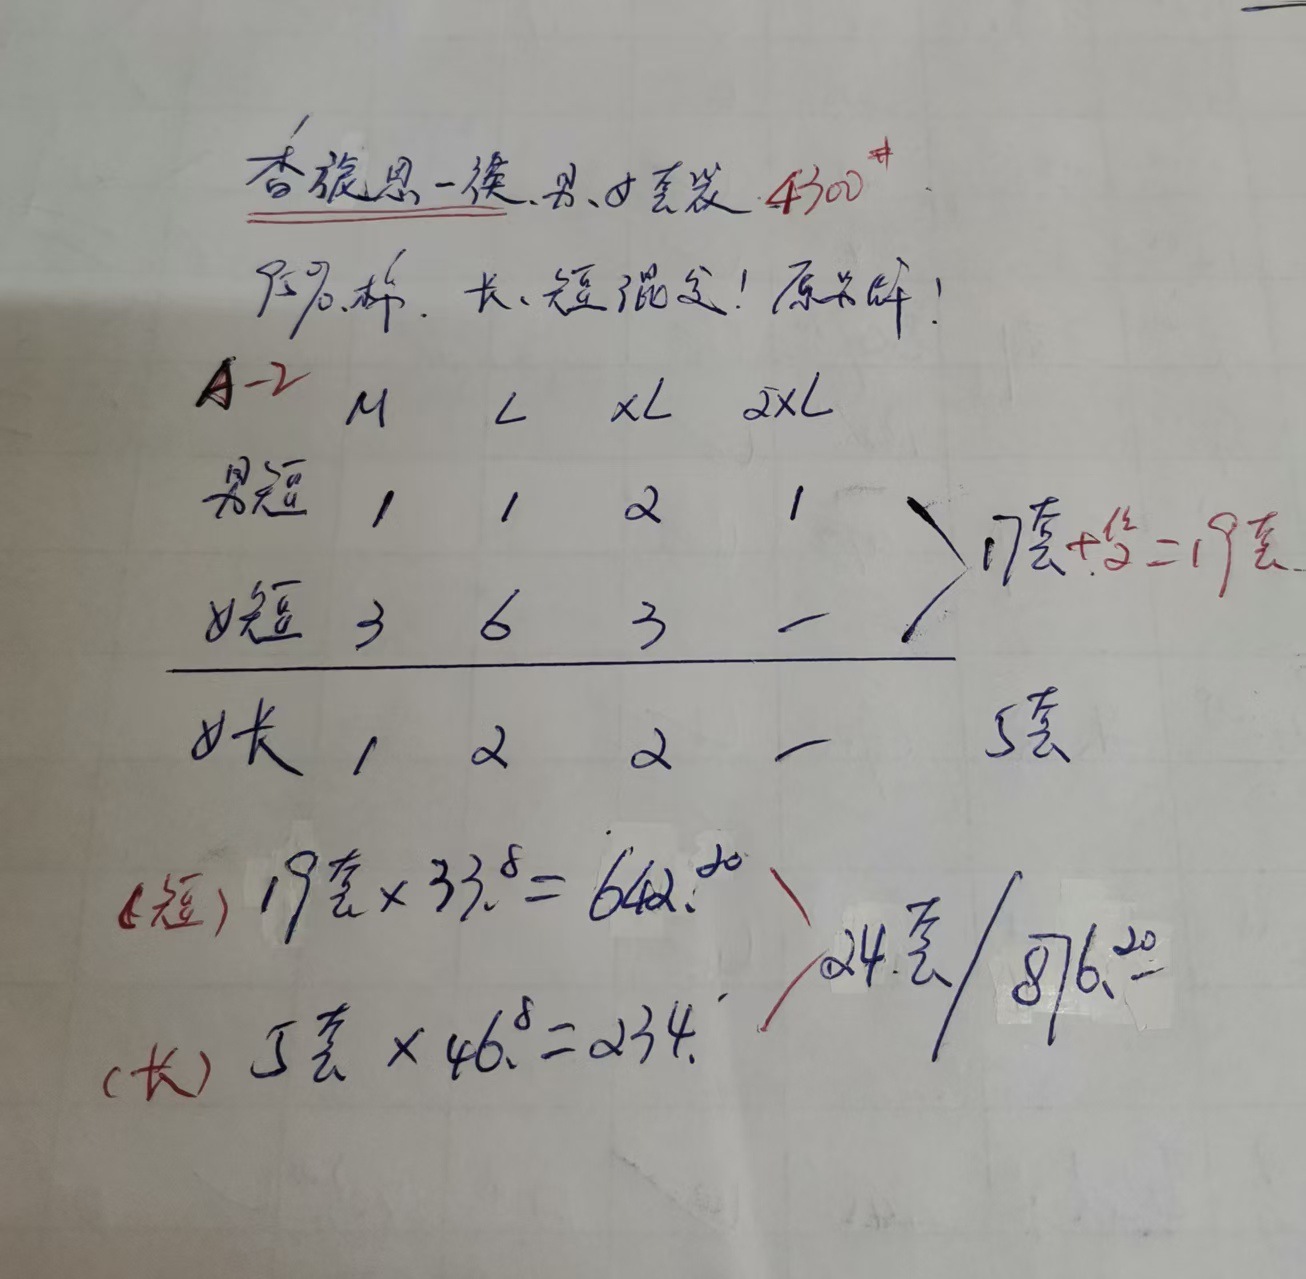 香旋恩一俟、男、女套装 4300#
95%棉. 长、短混交！原吊牌！
A-2 M L XL 2XL
男短 1 1 2 1
女短 3 6 3 — 17套+2=19套
女长 1 2 2 — 5套
(短) 19套×33.8=642.20
24套/876.20
(长) 5套×46.8=234.